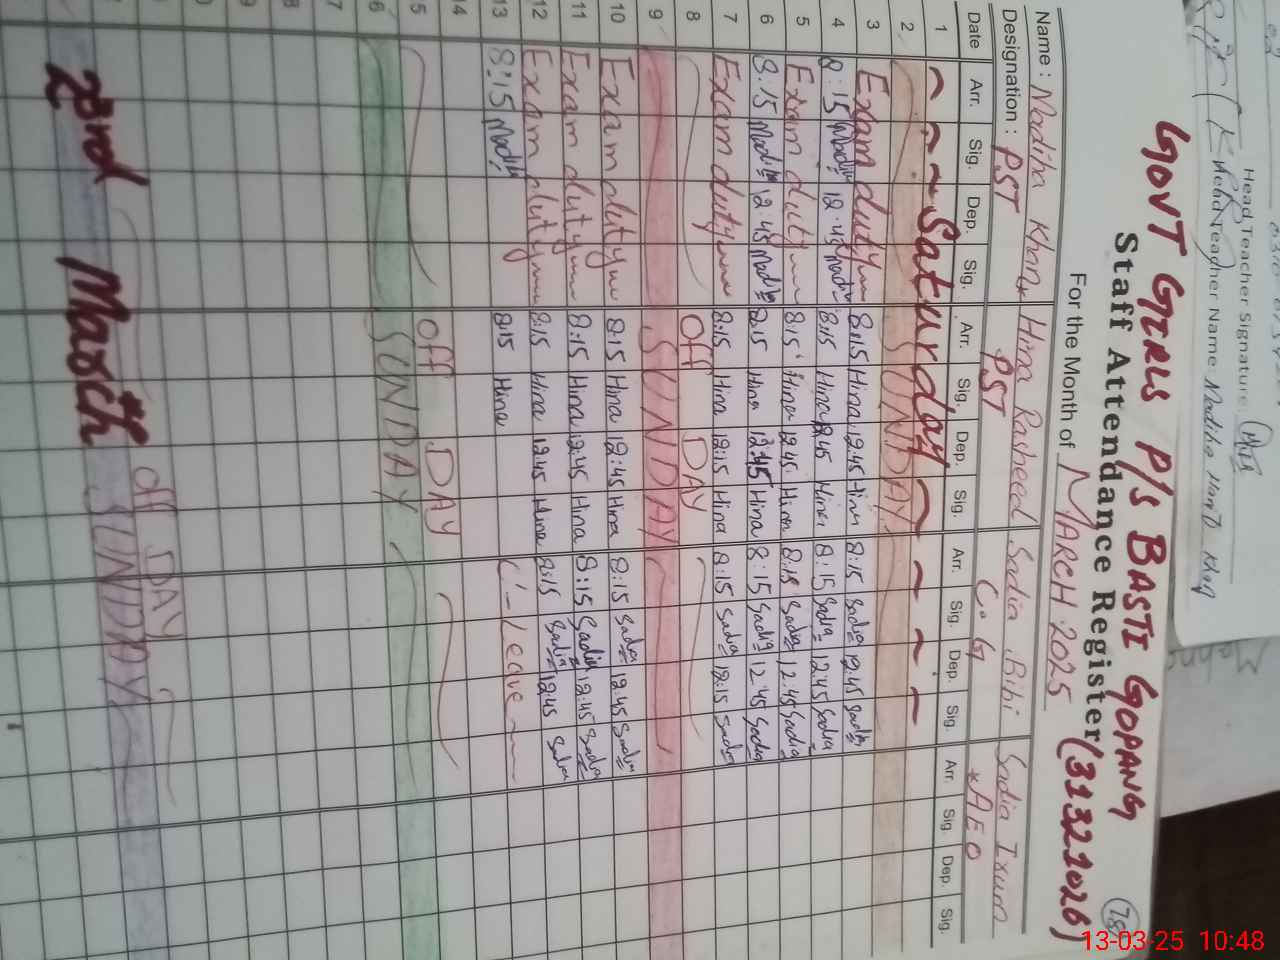 Head Teacher Signature:
Head Teacher Name: Madiha
GOVT GIRLS P/S BASTI GOPANG
Staff Attendance Register (31321026)
28
For the Month of MARCH 2025
Name: Madiha Khan Hina Rasheed Sadia Bibi Sadia Irum
Designation: PST PST C.G AEO
Date Arr. Sig. Dep. Sig. Arr. Sig. Dep. Sig. Arr. Sig. Dep. Sig. Arr. Sig. Dep. Sig.
1 Saturday
2 SUNDAY
3 Exam duty 8:15 Hina 12:45 Hina 8:15 Sadia 12:45 Sadia
4 8:15 Madiha 12:45 Madiha 8:15 Hina 12:45 Hina 8:15 Sadia 12:45 Sadia
5 Exam duty 8:15 Hina 12:45 Hina 8:15 Sadia 12:45 Sadia
6 8:15 Madiha 12:45 Madiha 8:15 Hina 12:45 Hina 8:15 Sadia 12:45 Sadia
7 Exam duty 8:15 Hina 12:15 Hina 8:15 Sadia 12:15 Sadia
8 Off DAY
9 SUNDAY
10 Exam duty 8:15 Hina 12:45 Hina 8:15 Sadia 12:45 Sadia
11 Exam duty 8:15 Hina 12:45 Hina 8:15 Sadia 12:45 Sadia
12 Exam duty 8:15 Hina 12:45 Hina 8:15 Sadia 12:45 Sadia
13 8:15 Madiha 8:15 Hina C'- leave
14
15 Off DAY
16 SUNDAY
Off DAY
SUNDAY
23rd March
13-03-25 10:48